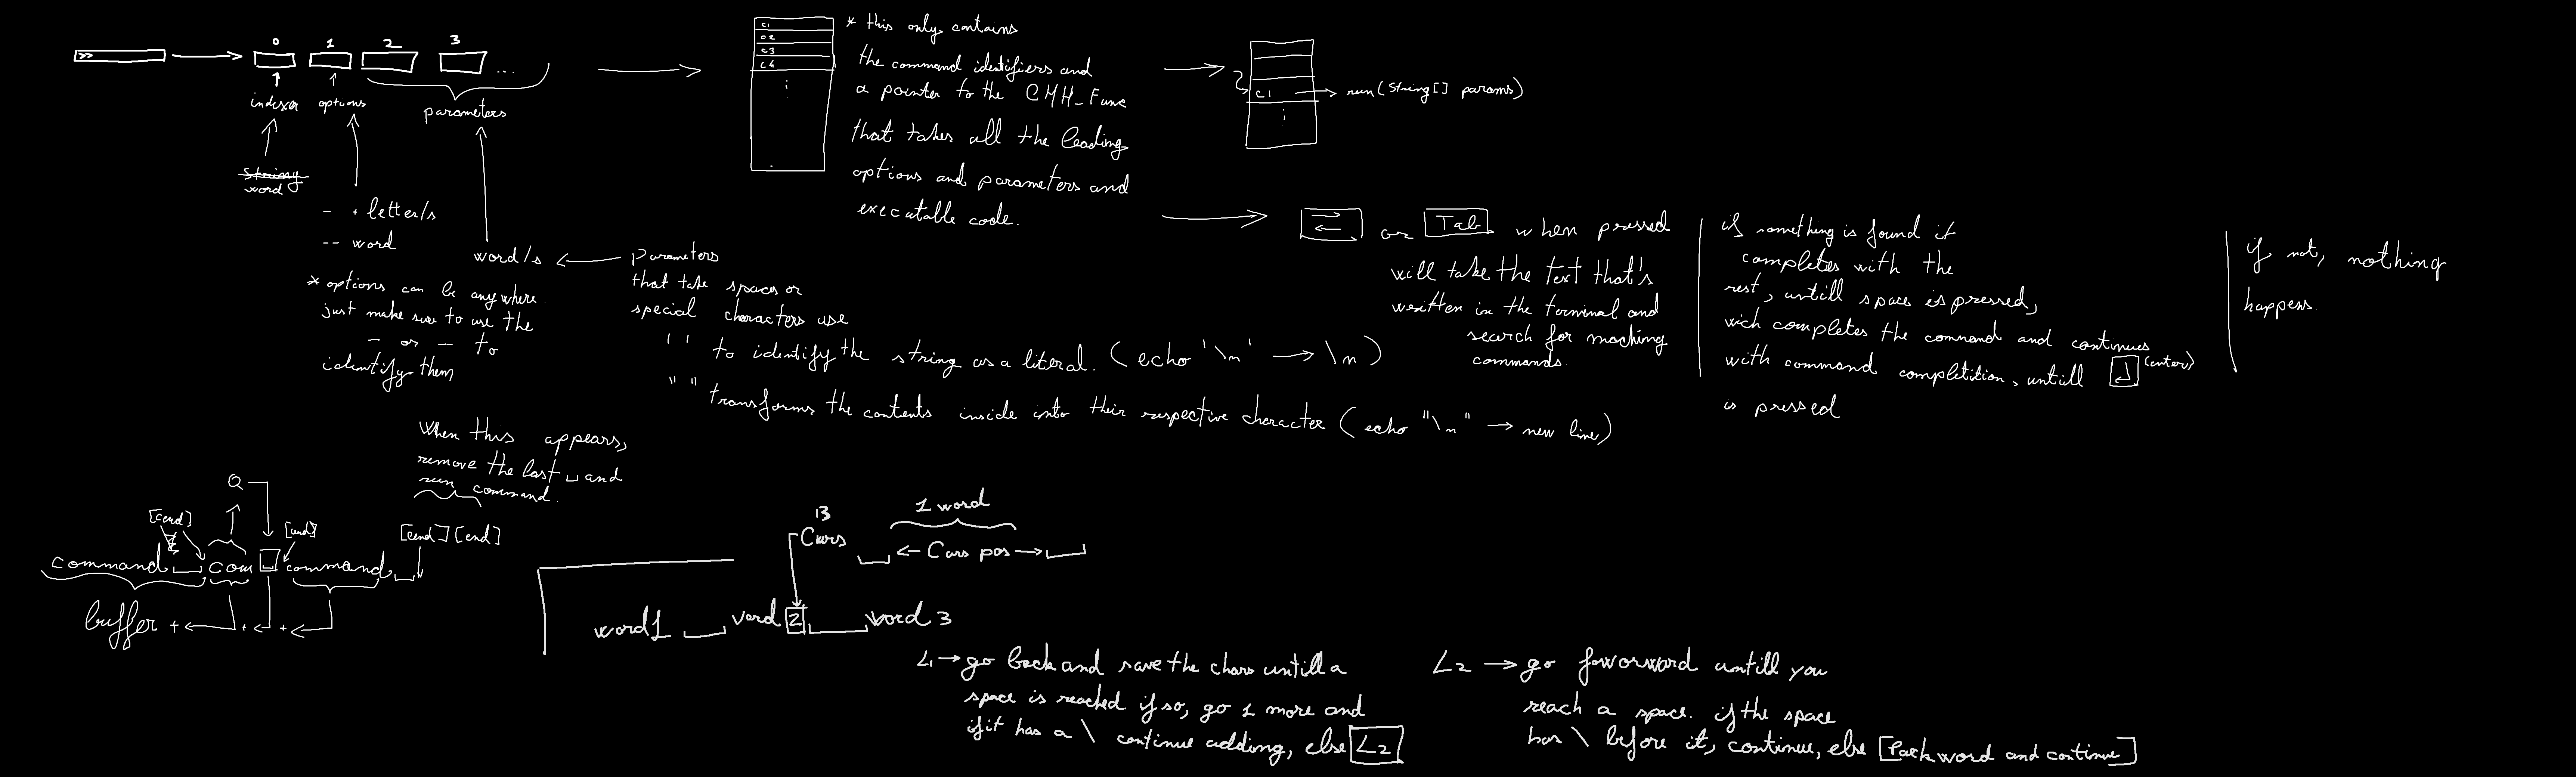 >>
0 1 2 3 ...
indexer options
parameters
string
word
- + letter/s
-- word
* options can be anywhere
just make sure to use the
- or -- to
identify them
word/s
parameters
that take spaces or
special characters use
' ' to identify the string as a literal. (echo '\n' → \n)
" " transforms the contents inside into their respective character (echo "\n" → new line)
C1
C2
C3
C4
* this only contains
the command identifiers and
a pointer to the CMH_Func
that takes all the leading
options and parameters and
executable code.
C1 → run(String[] params)
or Tab when pressed
will take the text that's
written in the terminal and
search for maching
commands
if something is found it
completes with the
rest, untill space is pressed,
wich completes the command and continues
with command completition, untill (enter)
is pressed
if not, nothing
happens
When this appears,
remove the last ␣ and
run command
Q
[cend] [end] [cend][end]
command com command
buffer + + +
13
Curs
1 word
← Curs pos →
word1 word2 word3
L1 → go back and save the chars untill a
space is reached. if so, go 1 more and
if it has a \ continue adding, else L2
L2 → go foworward untill you
reach a space. if the space
has \ before it, continue, else [Pack word and continue]